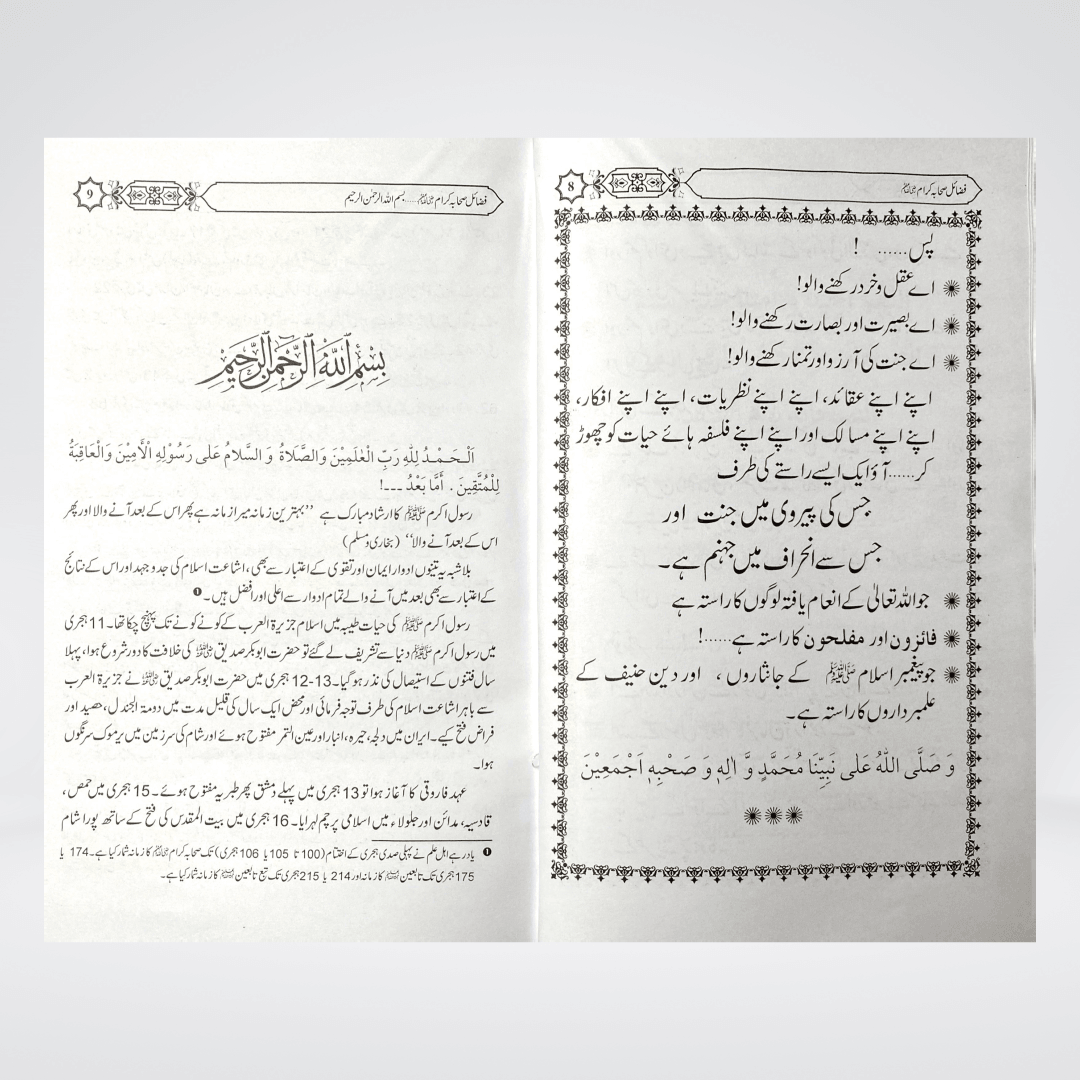 فضائل صحابہ کرام رضی اللہ عنہم
8
پس...... !
اے عقل و خرد رکھنے والو!
اے بصیرت اور بصارت رکھنے والو!
اے جنت کی آرزو اور تمنا رکھنے والو!
اپنے اپنے عقائد، اپنے اپنے نظریات، اپنے اپنے افکار،
اپنے اپنے مسالک اور اپنے اپنے فلسفہ ہائے حیات کو چھوڑ
کر......آؤ ایک ایسے راستے کی طرف
جس کی پیروی میں جنت اور
جس سے انحراف میں جہنم ہے۔
جو اللہ تعالیٰ کے انعام یافتہ لوگوں کا راستہ ہے
فائزون اور مفلحون کا راستہ ہے......!
جو پیغمبر اسلام ﷺ کے جانثاروں ، اور دین حنیف کے
علمبرداروں کا راستہ ہے۔
وَ صَلَّى اللّٰهُ عَلٰى نَبِيِّنَا مُحَمَّدٍ وَّ اٰلِهٖ وَ صَحْبِهٖ اَجْمَعِيْنَ
فضائل صحابہ کرام رضی اللہ عنہم......بسم اللہ الرحمٰن الرحیم
9
بِسْمِ اللّٰهِ الرَّحْمٰنِ الرَّحِيْمِ
اَلْحَمْدُ لِلّٰهِ رَبِّ الْعٰلَمِيْنَ وَالصَّلَاةُ وَ السَّلَامُ عَلٰى رَسُوْلِهِ الْأَمِيْنَ وَالْعَاقِبَةُ
لِلْمُتَّقِيْنَ . أَمَّا بَعْدُ ---!
رسول اکرم ﷺ کا ارشاد مبارک ہے ”بہترین زمانہ میرا زمانہ ہے پھر اس کے بعد آنے والا اور پھر
اس کے بعد آنے والا“ (بخاری و مسلم)
بلاشبہ یہ تینوں ادوار ایمان اور تقویٰ کے اعتبار سے بھی، اشاعت اسلام کی جدوجہد اور اس کے نتائج
کے اعتبار سے بھی بعد میں آنے والے تمام ادوار سے اعلیٰ اور افضل ہیں۔❶
رسول اکرم ﷺ کی حیات طیبہ میں اسلام جزیرۃ العرب کے کونے کونے تک پہنچ چکا تھا۔ 11 ہجری
میں رسول اکرم ﷺ دنیا سے تشریف لے گئے تو حضرت ابوبکر صدیق رضی اللہ عنہ کی خلافت کا دور شروع ہوا، پہلا
سال فتنوں کے استیصال کی نذر ہو گیا۔ 13-12 ہجری میں حضرت ابوبکر صدیق رضی اللہ عنہ نے جزیرۃ العرب
سے باہر اشاعت اسلام کی طرف توجہ فرمائی اور محض ایک سال کی قلیل مدت میں دومۃ الجندل، حصید اور
فراض فتح کیے۔ ایران میں دلجہ، حیرہ، انبار اور عین التمر مفتوح ہوئے اور شام کی سرزمین میں یرموک سرنگوں
ہوا۔
عہد فاروقی کا آغاز ہوا تو 13 ہجری میں پہلے دمشق پھر طبریہ مفتوح ہوئے۔ 15 ہجری میں حمص،
قادسیہ، مدائن اور جلولاء میں اسلامی پرچم لہرایا۔ 16 ہجری میں بیت المقدس کی فتح کے ساتھ پورا شام
❶ یاد رہے اہل علم نے پہلی صدی ہجری کے اختتام (100 تا 105 یا 106 ہجری) تک صحابہ کرام رضی اللہ عنہم کا زمانہ شمار کیا ہے۔ 174 یا
175 ہجری تک تابعین رحمہم اللہ کا زمانہ اور 214 یا 215 ہجری تک تبع تابعین رحمہم اللہ کا زمانہ شمار کیا ہے۔